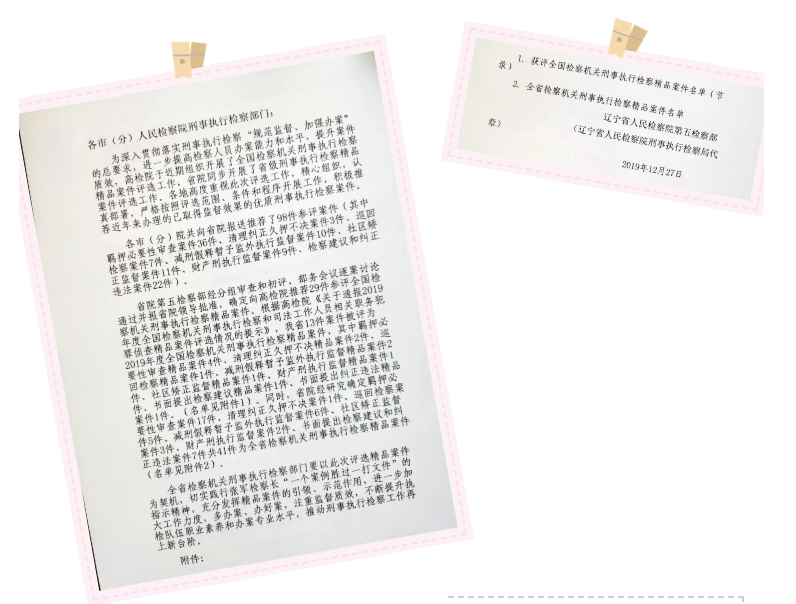 各市（分）人民检察院刑事执行检察部门：
为深入贯彻落实刑事执行检察“规范监督，加强办案”
的总要求，进一步提高检察人员办案能力和水平，提升案件
质效，高检院于近期组织开展了全国检察机关刑事执行检察
精品案件评选工作，省院同步开展了省级刑事执行检察精品
案件评选工作。各地高度重视此次评选工作，精心组织，认
真部署，严格按照评选范围、条件和程序开展工作，积极推
荐近年来办理的已取得监督效果的优质刑事执行检察案件。
各市（分）院共向省院报送推荐了98件参评案件（其中
羁押必要性审查案件36件、清理纠正久押不决案件3件、巡回
检察案件7件、减刑假释暂予监外执行监督案件10件、社区矫
正监督案件11件、财产刑执行监督案件9件、检察建议和纠正
违法案件22件）。
省院第五检察部经分组审查和初评，部务会议逐案讨论
通过并报省院领导批准，确定向高检院推荐29件参评全国检
察机关刑事执行检察精品案件。根据高检院《关于通报2019
年度全国检察机关刑事执行检察和司法工作人员相关职务犯
罪侦查精品案件评选情况的提示》，我省13件案件被评为
2019年度全国检察机关刑事执行检察精品案件，其中羁押必
要性审查精品案件4件、清理纠正久押不决精品案件2件、巡
回检察精品案件1件、减刑假释暂予监外执行监督精品案件2
件、社区矫正监督精品案件1件、财产刑执行监督精品案件1
件、书面提出检察建议精品案件1件、书面提出纠正违法精品
案件1件。（名单见附件1）。同时，省院经研究确定羁押必
要性审查案件17件、清理纠正久押不决案件1件、巡回检察案
件5件、减刑假释暂予监外执行监督案件6件、社区矫正监督
案件3件、财产刑执行监督案件2件、书面提出检察建议和纠
正违法案件7件共41件为全省检察机关刑事执行检察精品案件
（名单见附件2）。
全省检察机关刑事执行检察部门要以此次评选精品案件
为契机，切实践行张军检察长“一个案例胜过一打文件”的
指示精神，充分发挥精品案件的引领、示范作用，进一步加
大工作力度，多办案、办好案，注重监督质效，不断提升执
检队伍职业素养和办案专业水平，推动刑事执行检察工作再
上新台阶。
附件：
1. 获评全国检察机关刑事执行检察精品案件名单（节
录）
2. 全省检察机关刑事执行检察精品案件名单
辽宁省人民检察院第五检察部
（辽宁省人民检察院刑事执行检察局代
章）
2019年12月27日